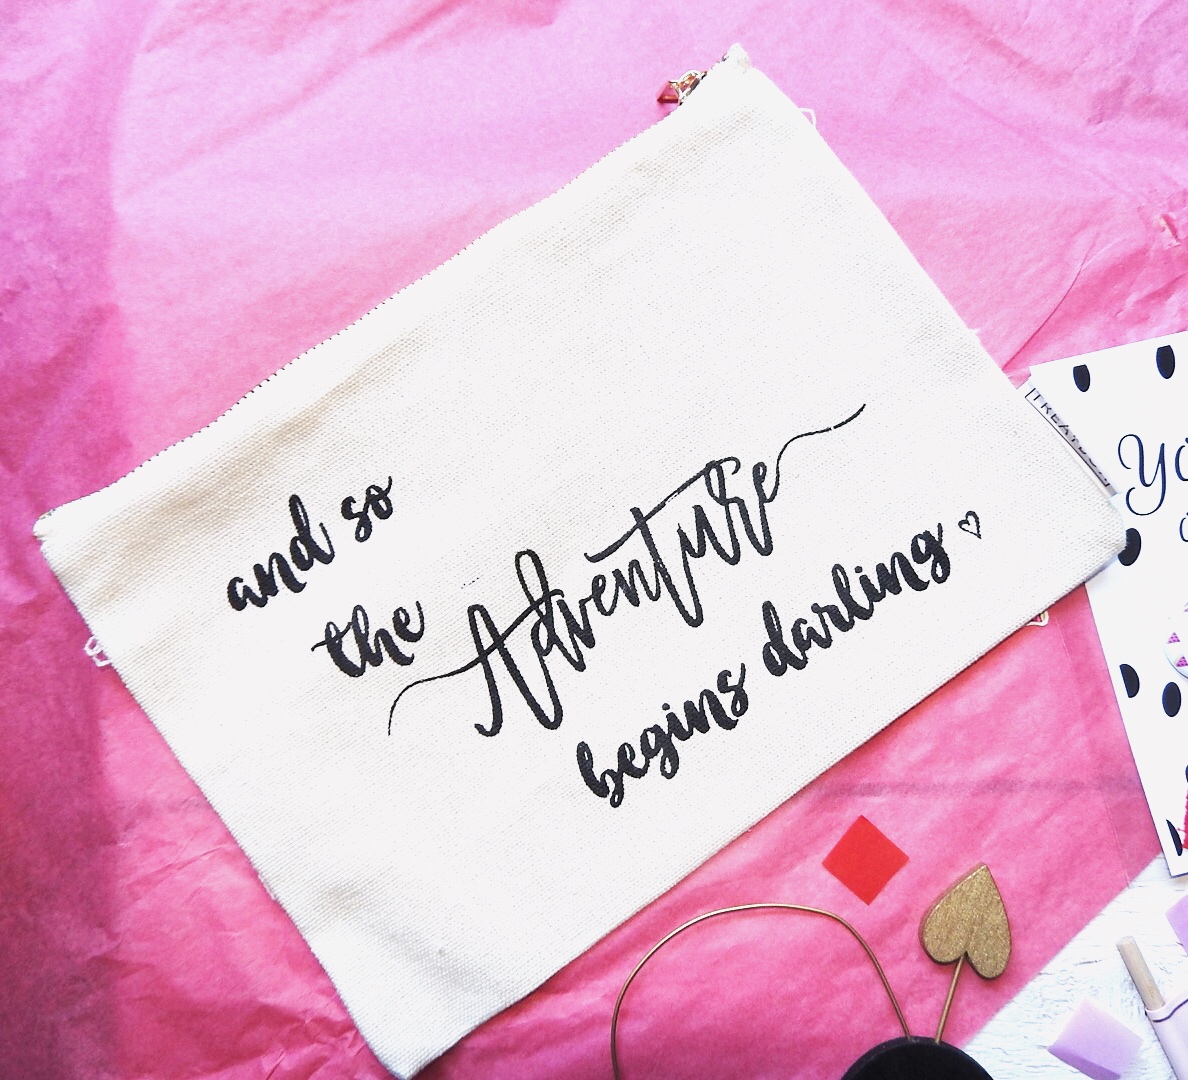 and so
the Adventure
begins darling